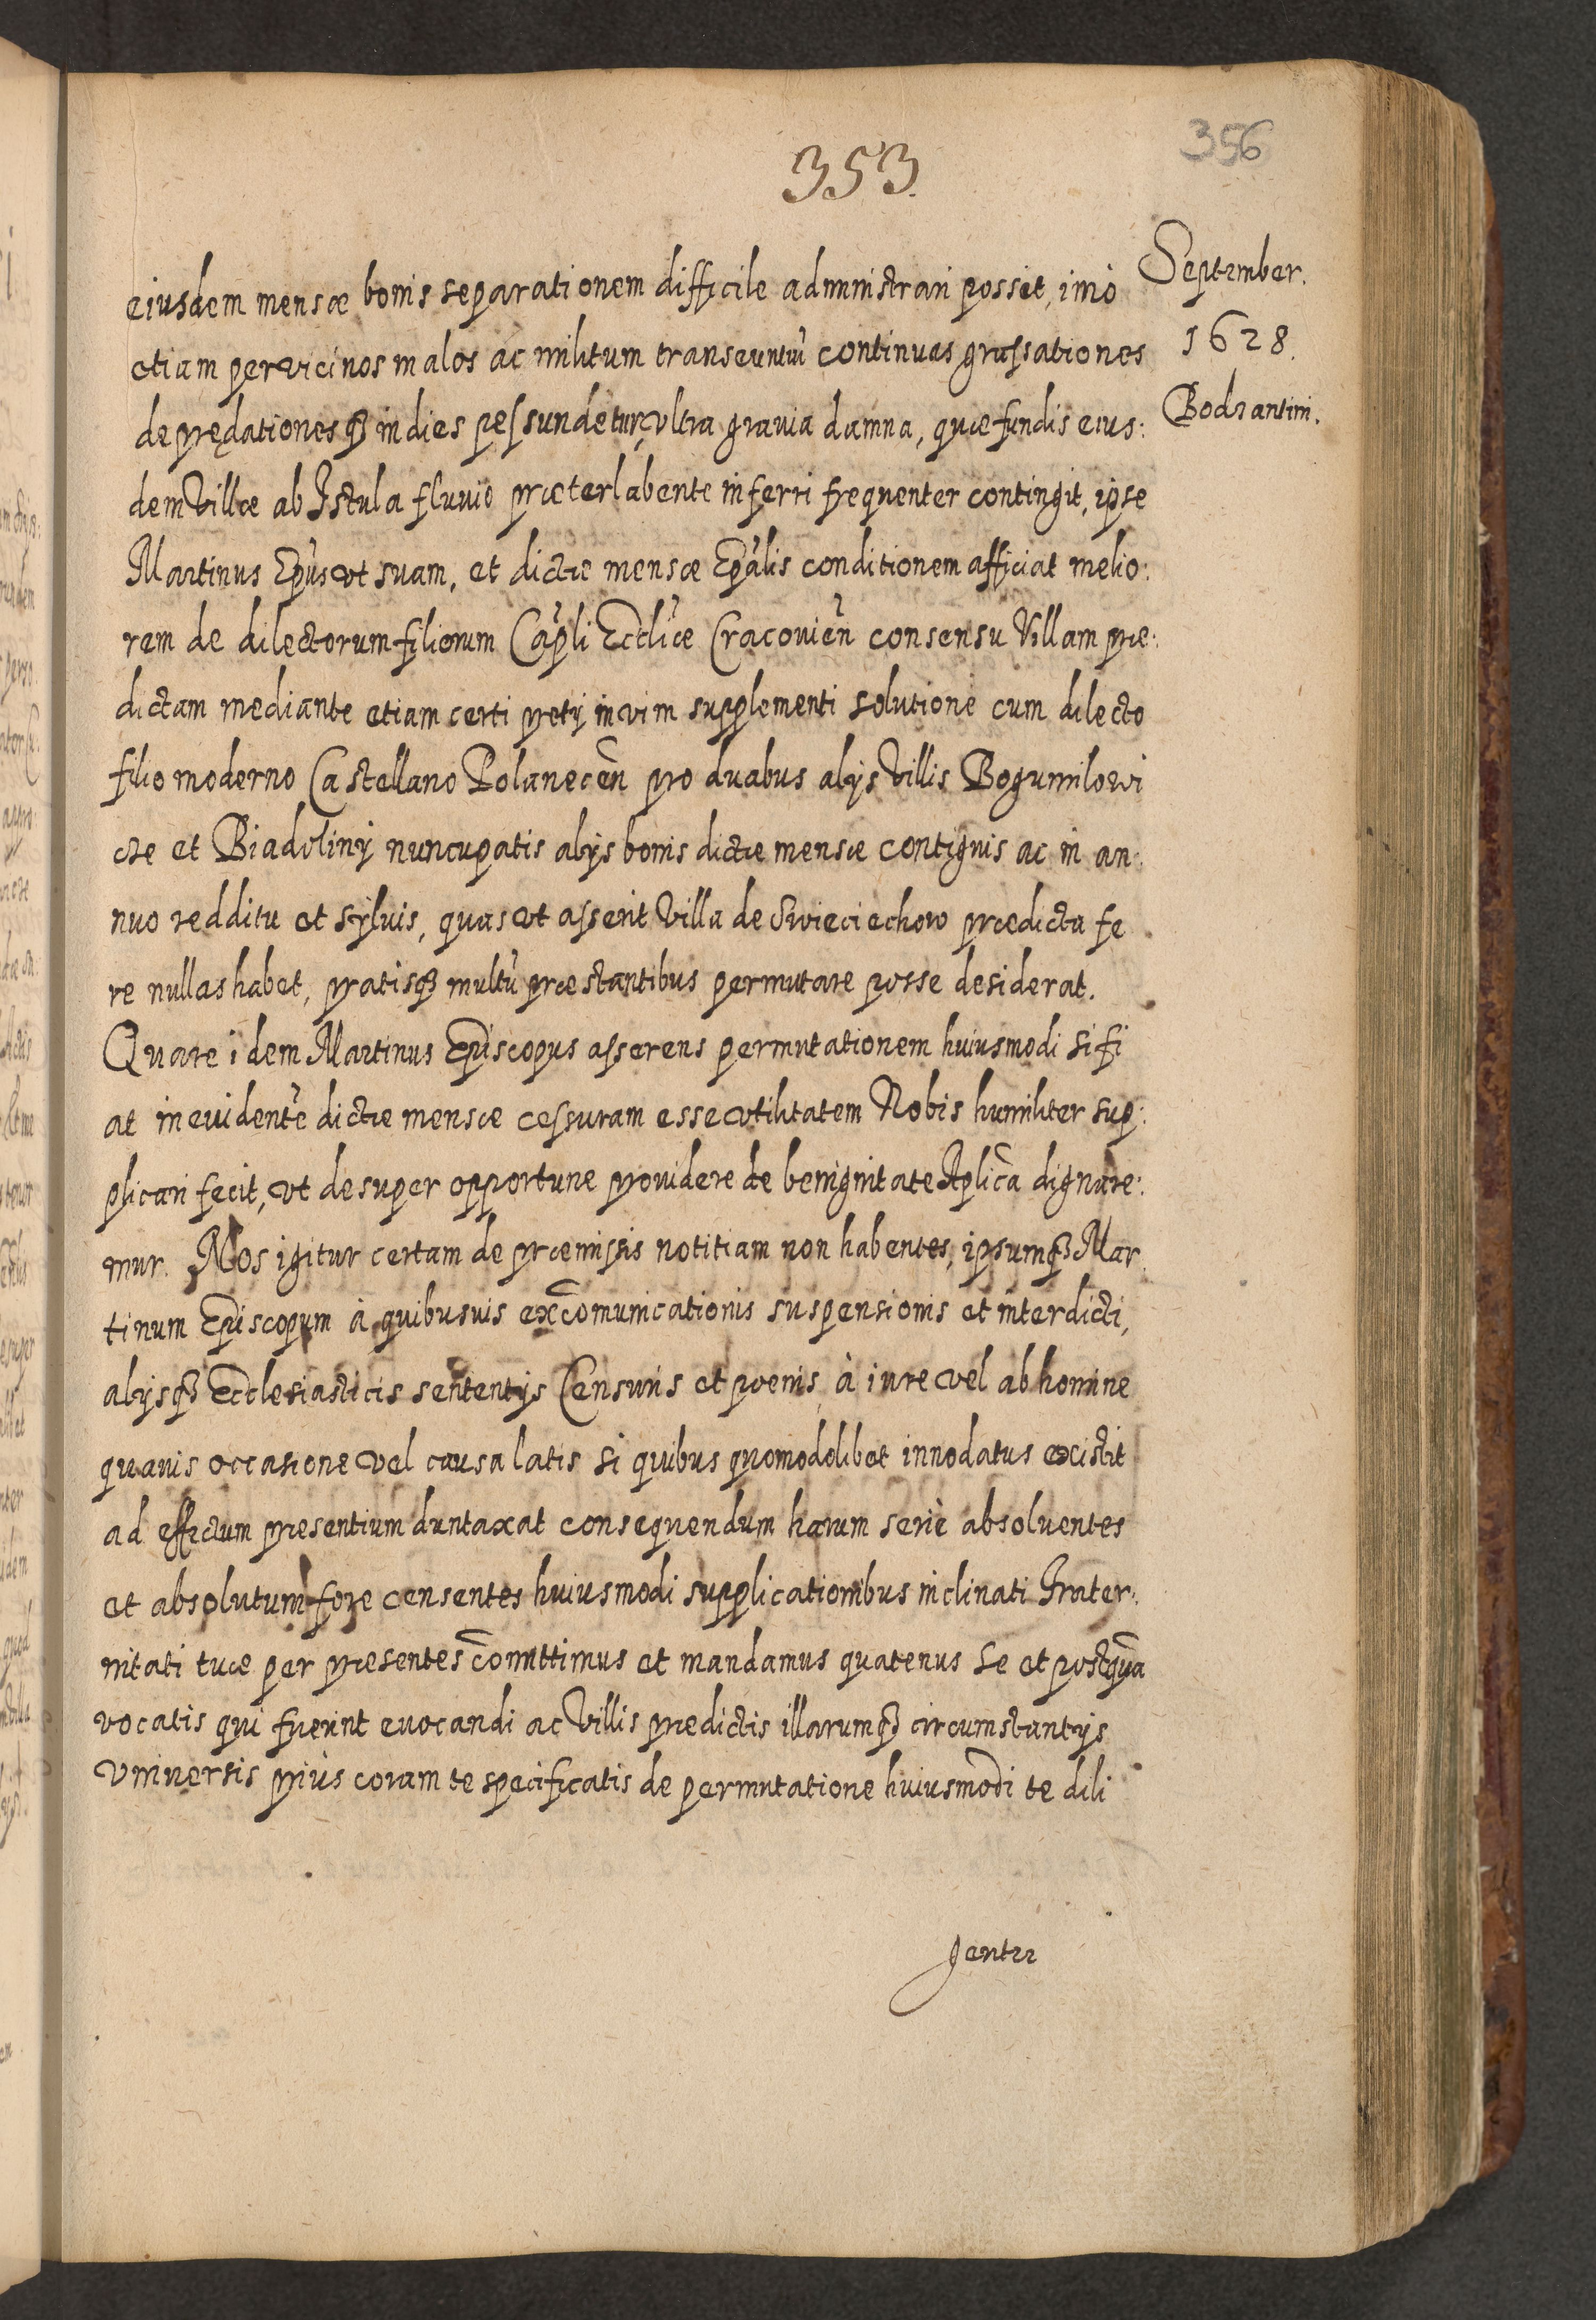 353.
356
September.
1628.
Bodzantini.
eiusdem mensæ bonis separationem difficile administrari possit, imò
etiam per vicinos malos ac militum transeuntiũ continuas grassationes
deprędationesq3 in dies pessundetur, vltra grauia damna, quæ fundis eius:
dem Villæ ab Istula fluuio præterlabente inferri frequenter contingit, ipse
Martinus Ep̃us vt suam, et dictæ mensæ Ep̃alis conditionem afficiat melio:
rem de dilectorum filiorum Cap̃li Eccl̃iæ Cracouien̄ consensu Villam præ:
dictam mediante etiam certi pretij in vim supplementi solutione cum dilecto
filio moderno Castellano Polanecen̄ pro duabus alijs Villis Bogumilowi
cze et Biadoliny nuncupatis alijs bonis dictæ mensæ contiguis ac in an:
nuo redditu et syluis, quas vt asserit Villa de Swieciechow prædicta fe
re nullas habet, pratisq3 multũ præstantibus permutare posse desiderat.
Quare idem Martinus Episcopus asserens permutationem huiusmodi si fi
at in euidentẽ dictæ mensæ cessuram esse vtilitatem Nobis humiliter sup:
plicari fecit, vt desuper opportune prouidere de benignitate Aplica̅ dignare:
mur. Nos igitur certam de præmissis notitiam non habentes, ipsumq3 Mar
tinum Episcopum à quibusuis excom̅unicationis suspensionis et interdicti,
alijsq3 Ecclesiasticis sententijs Censuris et pœnis à iure vel ab homine
quauis occasione vel causa latis si quibus quomodolibet innodatus existit
ad effectum præsentium duntaxat consequendum harum serie absoluentes
et absolutum fore censentes huiusmodi supplicationibus inclinati Frater:
nitati tuæ per præsentes com̅ittimus et mandamus quatenus se et postqua̅
vocatis qui fuerint euocandi ac Villis prædictis illarumq3 circumstantijs
vniuersis priùs coram te specificatis de permutatione huiusmodi te dili
genter